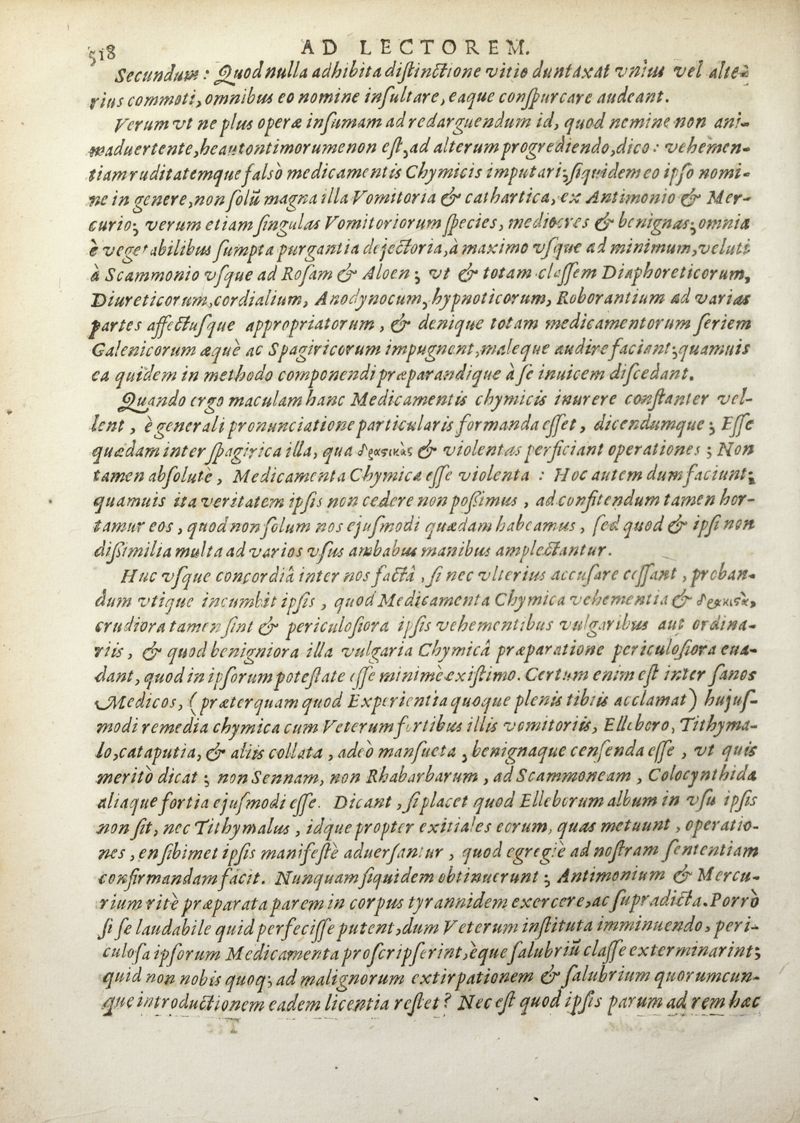 518 AD LECTOREM.
Secundum : Quod nulla adhibita distinctione vitio duntaxat vnius vel alte-
rius commoti, omnibus eo nomine insultare, eaque conspurcare audeant.
Verum vt ne plus operæ insumam ad redarguendum id, quod nemine non ani-
maduertente, heautontimorumenon est, ad alterum progrediendo, dico : vehemen-
tiam ruditatemque falsò medicamentis Chymicis imputari; siquidem eo ipso nomi-
ne in genere, non solũ magna illa Vomitoria & cathartica, ex Antimonio & Mer-
curio; verum etiam singulas Vomitoriorum species, mediocres & benignas; omnia
è vegetabilibus sumpta purgantia dejectoria, à maximo vsque ad minimum, veluti
à Scammonio vsque ad Rosam & Aloen; vt & totam classem Diaphoreticorum,
Diureticorum, cordialium, Anodynocum, hypnoticorum, Roborantium ad varias
partes affectusque appropriatorum, & denique totam medicamentorum seriem
Galenicorum æquè ac Spagiricorum impugnent, maleque audire faciant; quamuis
ea quidem in methodo componendi præparandique à se inuicem discedant.
Quando ergo maculam hanc Medicamentis chymicis inurere constanter vel-
lent, è generali pronunciatione particularis formanda esset, dicendumque; Esse
quædam inter spagirica illa, qua δραστικὰς & violentas perficiant operationes; Non
tamen absolute, Medicamenta Chymica esse violenta : Hoc autem dum faciunt;
quamuis ita veritatem ipsis non cedere non possimus, ad confitendum tamen hor-
tamur eos, quod non solum nos ejusmodi quædam habeamus, sed quod & ipsi non
dissimilia multa ad varios vsus ambabus manibus amplectantur.
Huc vsque concordiâ inter nos factâ, si nec vlterius accusare cessant, proban-
dum vtique incumbit ipsis, quod Medicamenta Chymica vehementia &
crudiora tamen sint & periculosiora ipsis vehementibus vulgaribus aut ordina-
riis, & quod benigniora illa vulgaria Chymicâ præparatione periculosiora eua-
dant, quod in ipsorum potestate esse minimè existimo. Certum enim est inter sanos
Medicos, (præterquam quod Experientia quoque plenis tibiis acclamat) hujus-
modi remedia chymica cum Veterum fortibus illis vomitoriis, Ellebero, Tithyma-
lo, cataputia, & aliis collata, adeò mansueta, benignaque censenda esse, vt quis
meritò dicat; non Sennam, non Rhabarbarum, ad Scammoneam, Colocynthida
aliaque fortia ejusmodi esse. Dicant, si placet quod Elleborum album in vsu ipsis
non sit, nec Tithymalus, idque propter exitiales eorum, quas metuunt, operatio-
nes, en sibimet ipsis manifestè aduersantur, quod egregiè ad nostram sententiam
confirmandam facit. Nunquam siquidem obtinuerunt; Antimonium & Mercu-
rium ritè præparata parem in corpus tyrannidem exercere, ac supradicta. Porrò
si se laudabile quid perfecisse putent, dum Veterum instituta imminuendo, peri-
culosa ipsorum Medicamenta proscripserint, èque salubriũ classe exterminarint;
quid non nobis quoq; ad malignorum extirpationem & salubrium quorumcun-
que introductionem eadem licentia restet? Nec est quod ipsis parum ad rem hæc